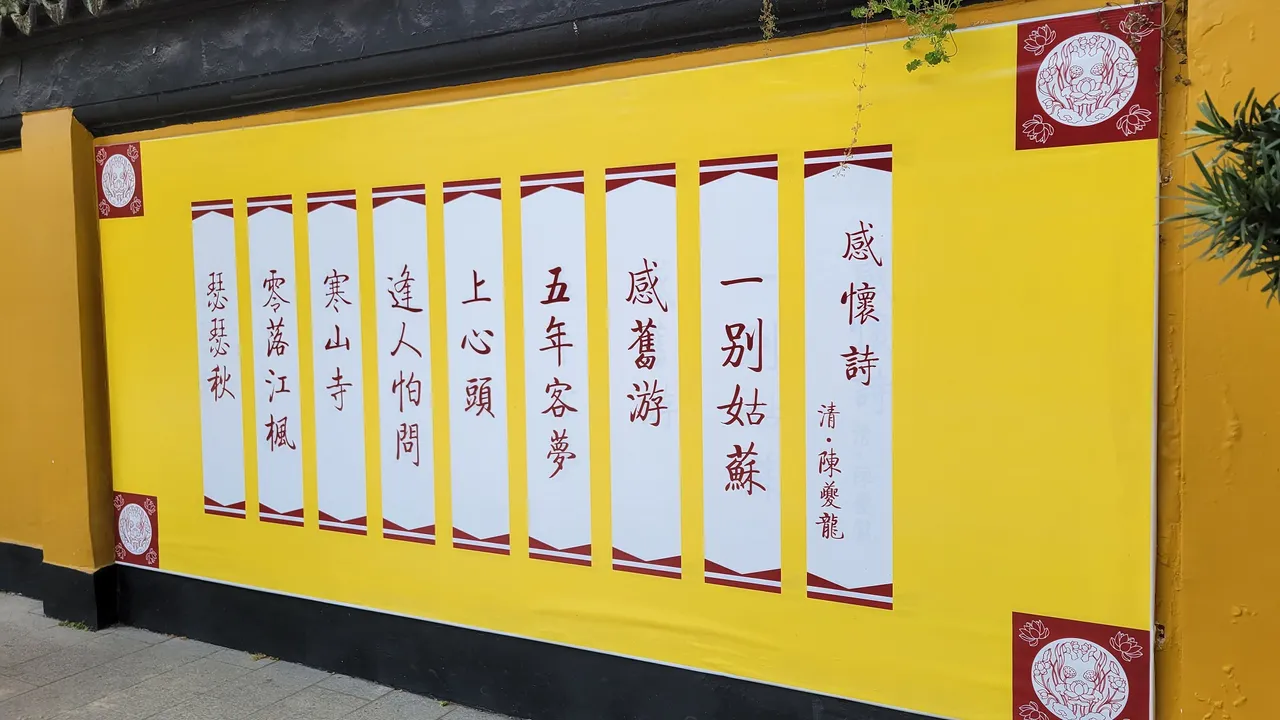 感懷詩
清·陳夔龍
一别姑蘇
感舊游
五年客夢
上心頭
逢人怕問
寒山寺
零落江楓
瑟瑟秋